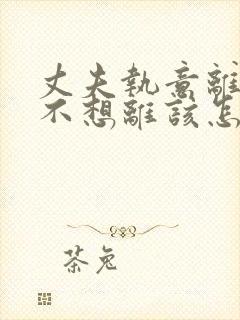 丈夫執意離
不想離該怎
茶兔